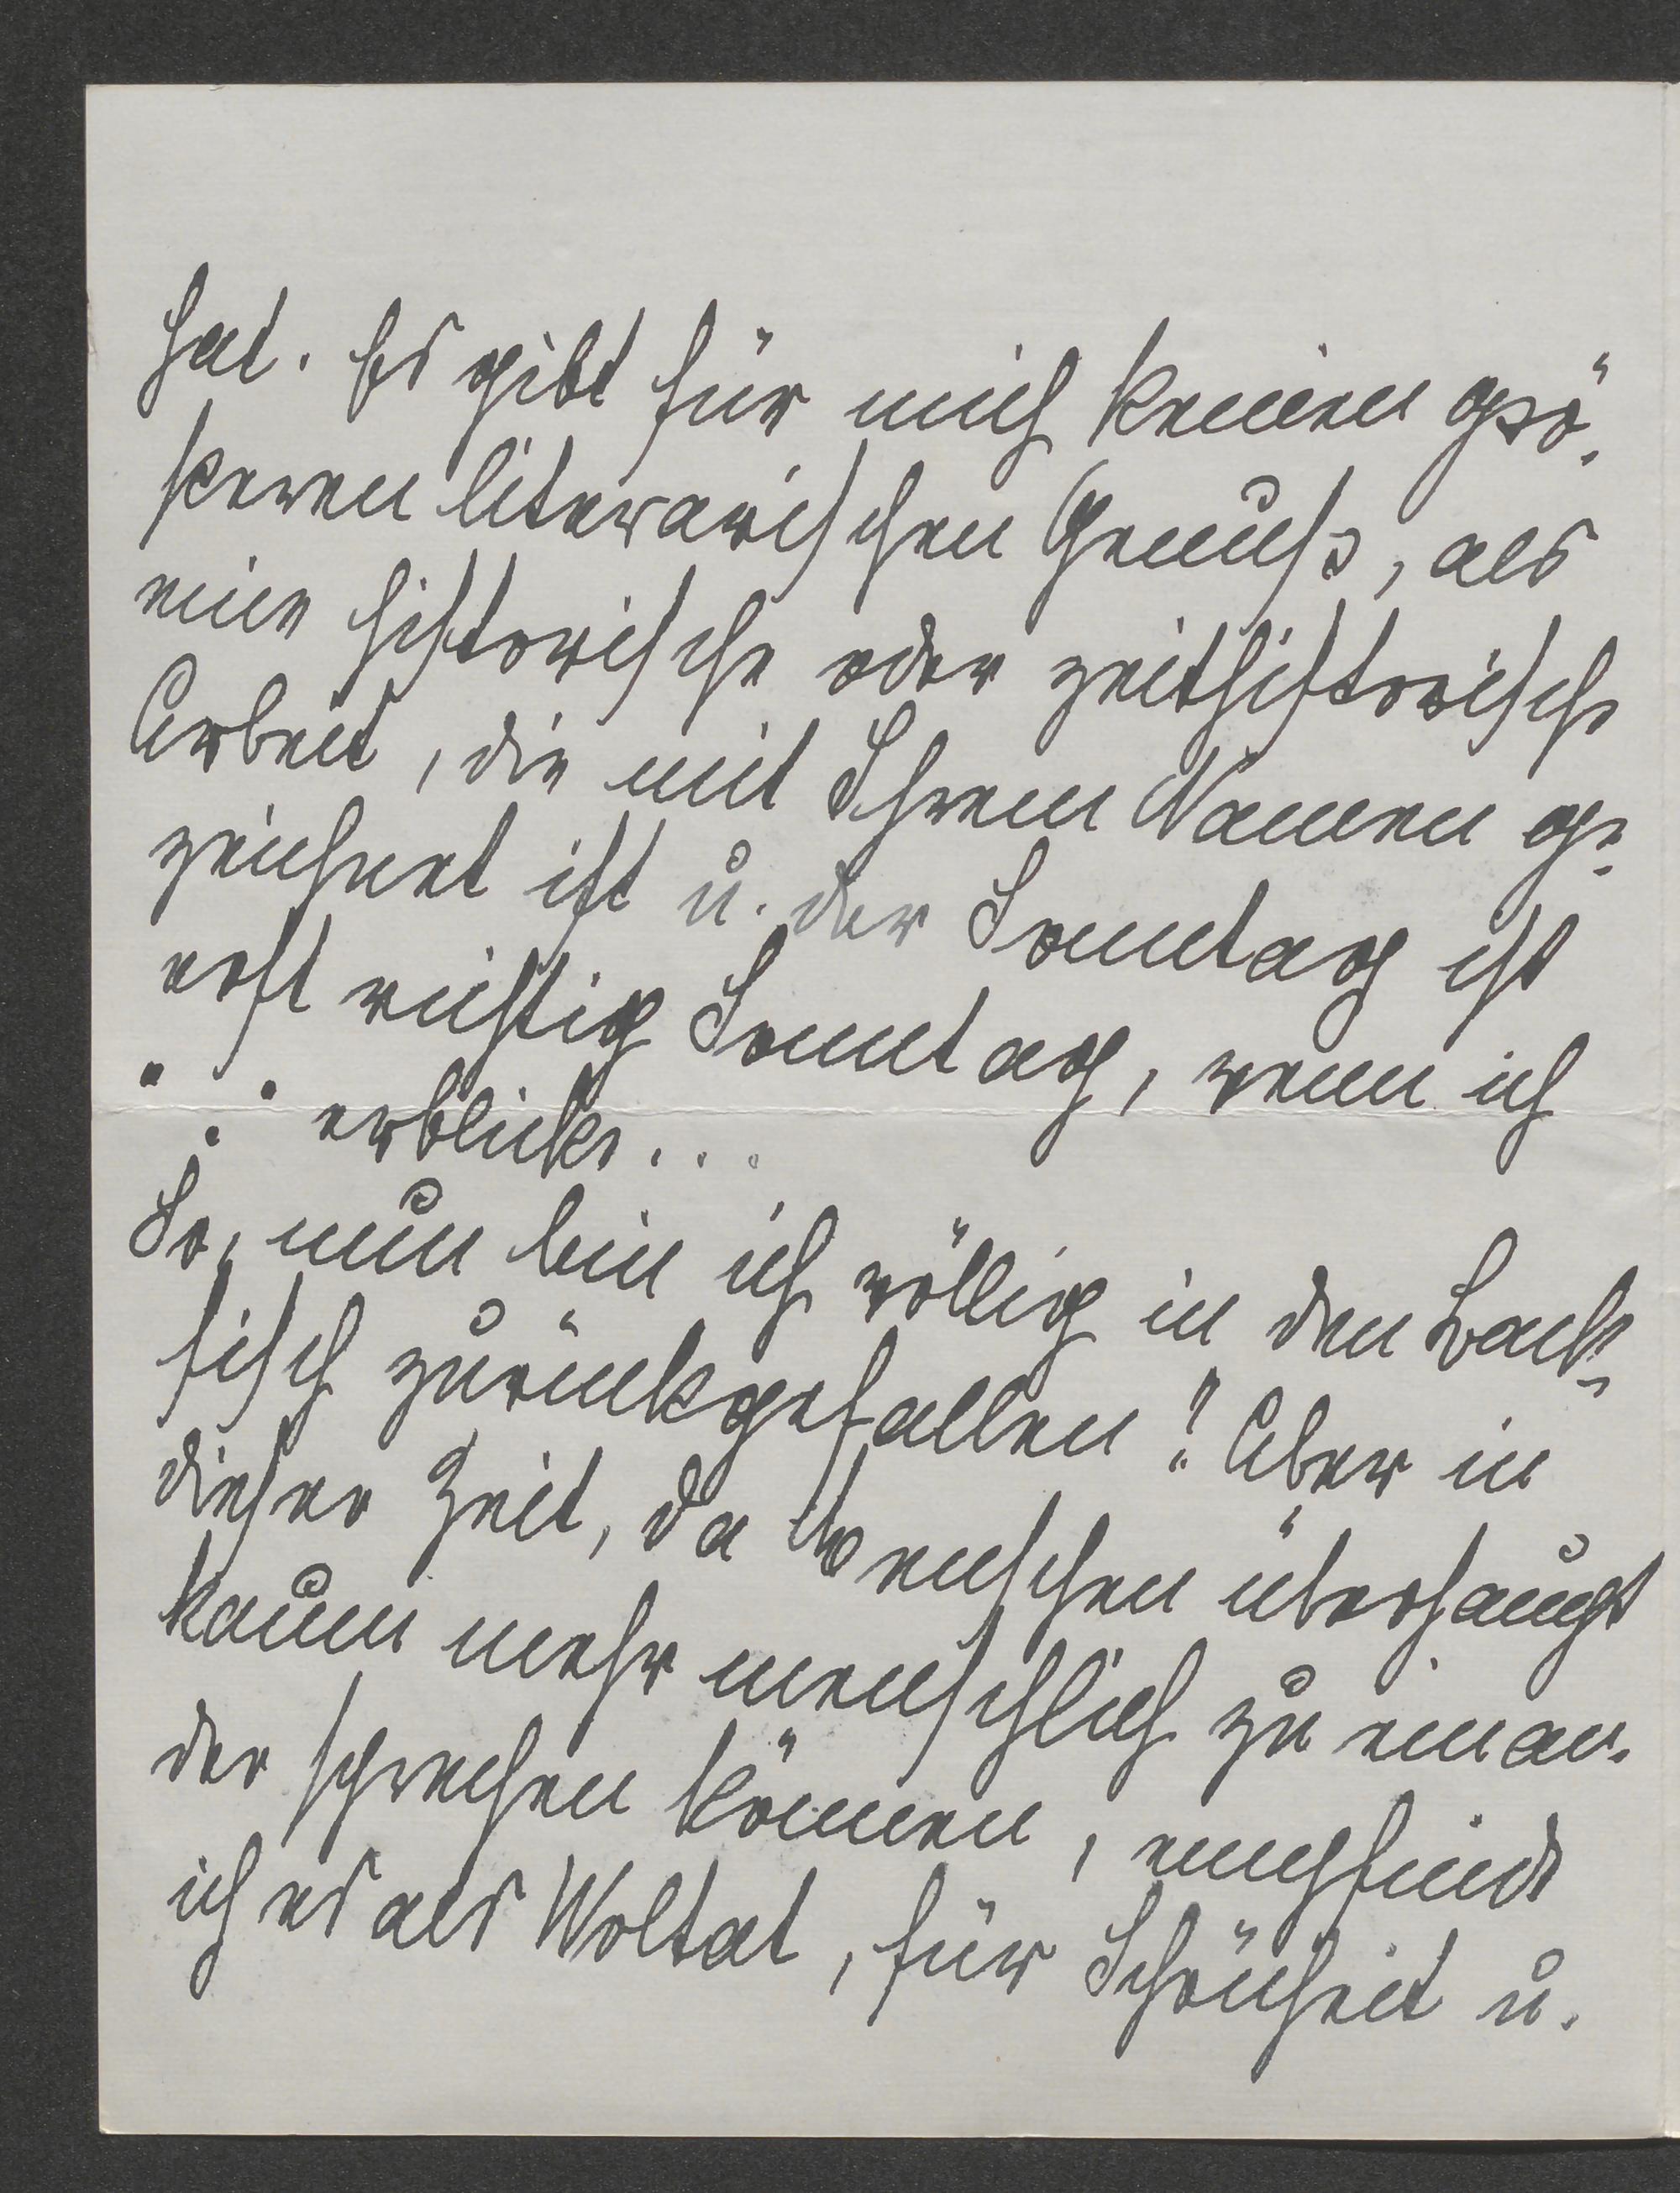 hat. Es gibt für mich keinen grö-
ßeren literarischen Genuss, als
eine historische oder zeithistorische
Arbeit, die mit Ihrem Namen ge-
zeichnet ist u. der Sonntag ist
erst richtig Sonntag, wenn ich
∵ erblicke...
So, nun bin ich völlig in den Back-
fisch zurückgefallen! Aber in
dieser Zeit, da Menschen überhaupt
kaum mehr menschlich zu einan-
der sprechen können, empfinde
ich es als Woltat, für Schönheit u.